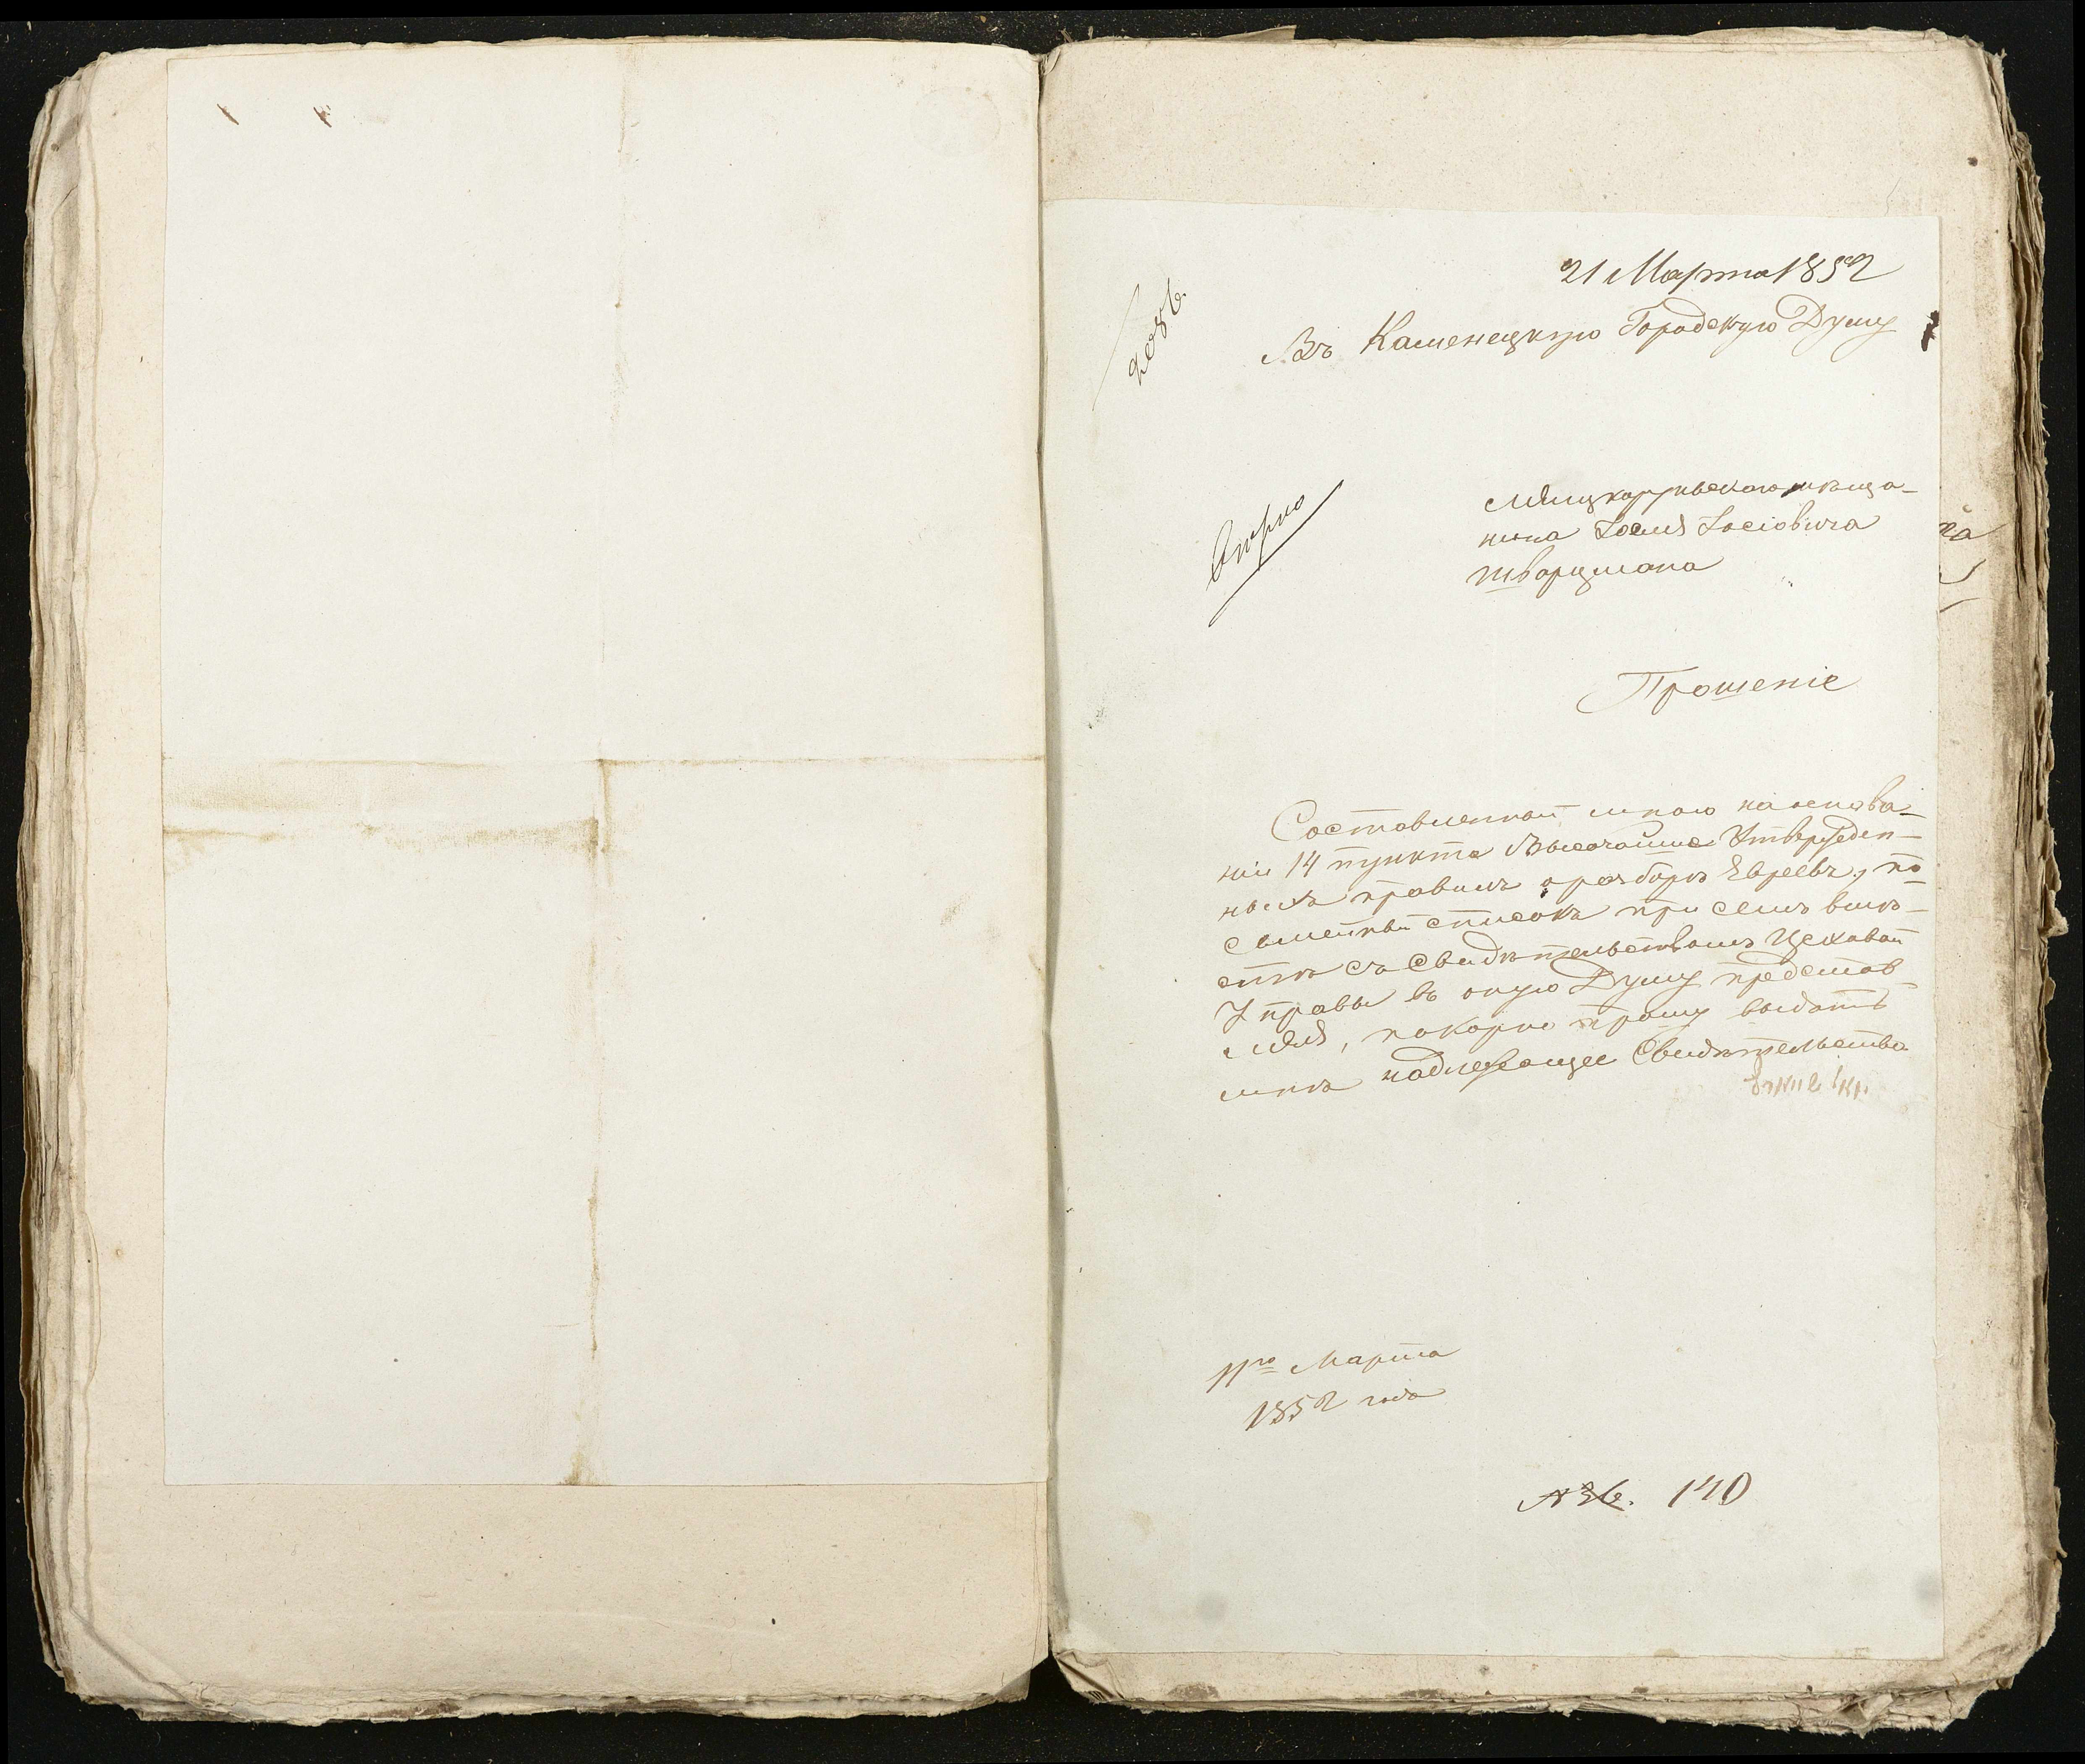 21 Марта 1852
Въ Каменецкую Городскую Думу
2086.
мѣща-
нина Іося Іосіовича
Шварцмана
Прошеніе
Составленный мною на основа-
ніи 14 пункта Высочайше Утвержден-
ныхъ правилъ о разборѣ Евреевъ, по-
семейный списокъ при семъ вмѣ-
стѣ съ Свидѣтельствомъ Цеховой
Управы въ оную Думу представ-
ляя, покорно прошу выдать
мнѣ надлежащее Свидѣтельство
11го Марта
1852 года
№ 36. 140